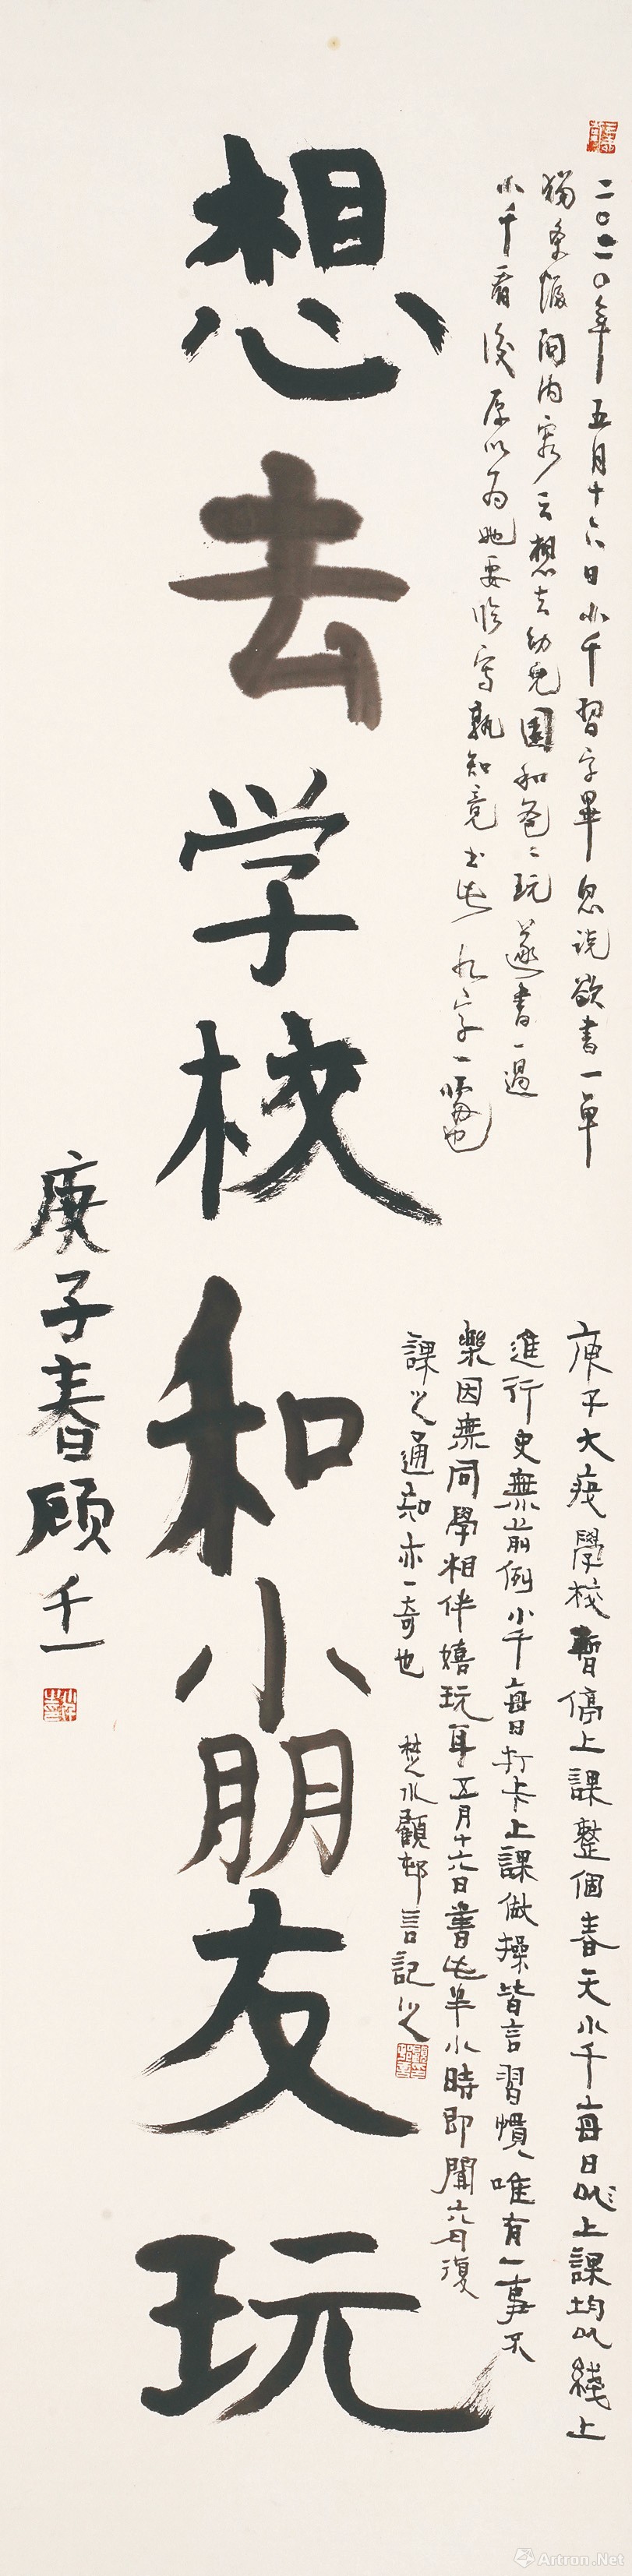 二〇二〇年五月十六日小千習字畢忽说欲書一單
獨条幅问内容云想去幼兒園和爸〻玩遂書一過
小千看後原以为她要临写孰知竟书此九字一幅也
想去学校和小朋友玩
庚子大疫學校暫停上課整個春天小千每日上課均以綫上
進行史無前例小千每日打卡上課做操皆言習慣唯有一事不
樂因無同學相伴嬉玩耳五月十六日書此半小時即聞六月復
課之通知亦一奇也 楚水顧邨言記之
庚子春顾千一
Artron.Net